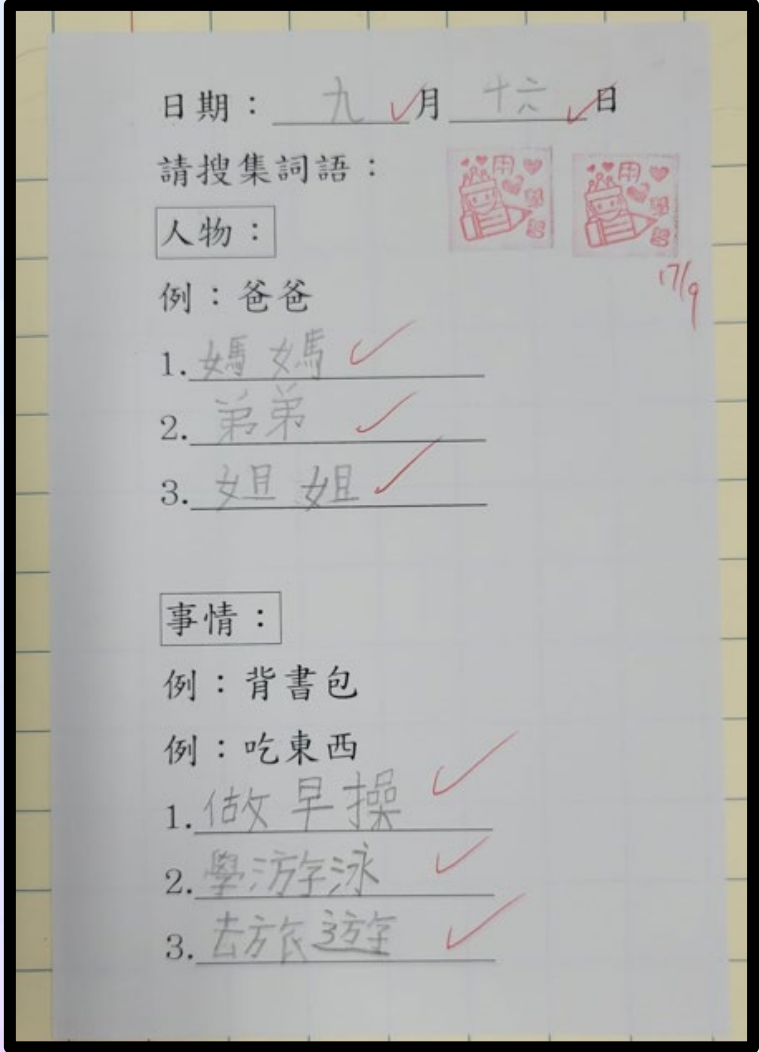 日期：九月十六日
請搜集詞語：
用
用
人物：
17/9
例：爸爸
1.媽媽
2.弟弟
3.姐姐
事情：
例：背書包
例：吃東西
1.做早操
2.學游泳
3.去旅遊